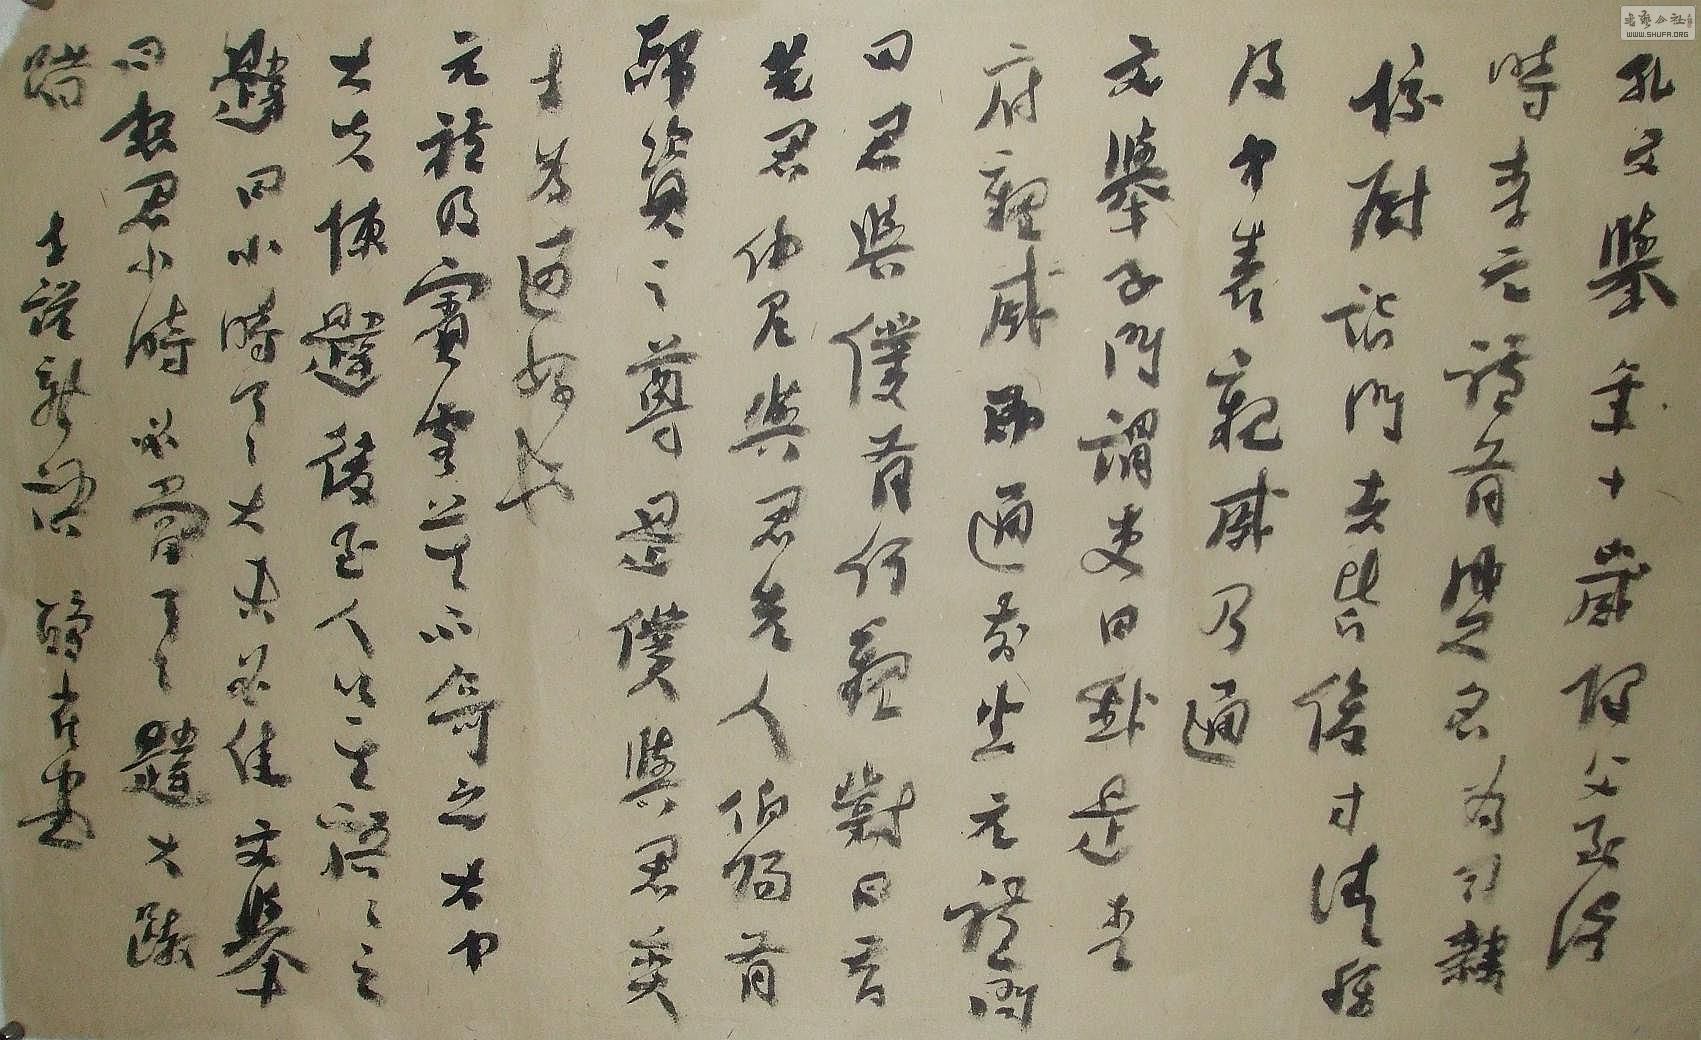 孔文舉年十歲隨父至洛
時李元禮有盛名為司隸
校尉詣門者皆俊才清稱
及中表親戚乃通
文舉至門謂吏曰我是李
府親戚既通前坐元禮問
曰君與僕有何親對曰昔
先君仲尼與君先人伯陽有
師資之尊是僕與君奕
世為通好也
元禮及賓客莫不奇之太中
大夫陳韙後至人以其語語之
韙曰小時了了大未必佳文舉
曰想君小時必當了了韙大踧
踖 世說新語 書
書藝公社
WWW.SHUFA.ORG